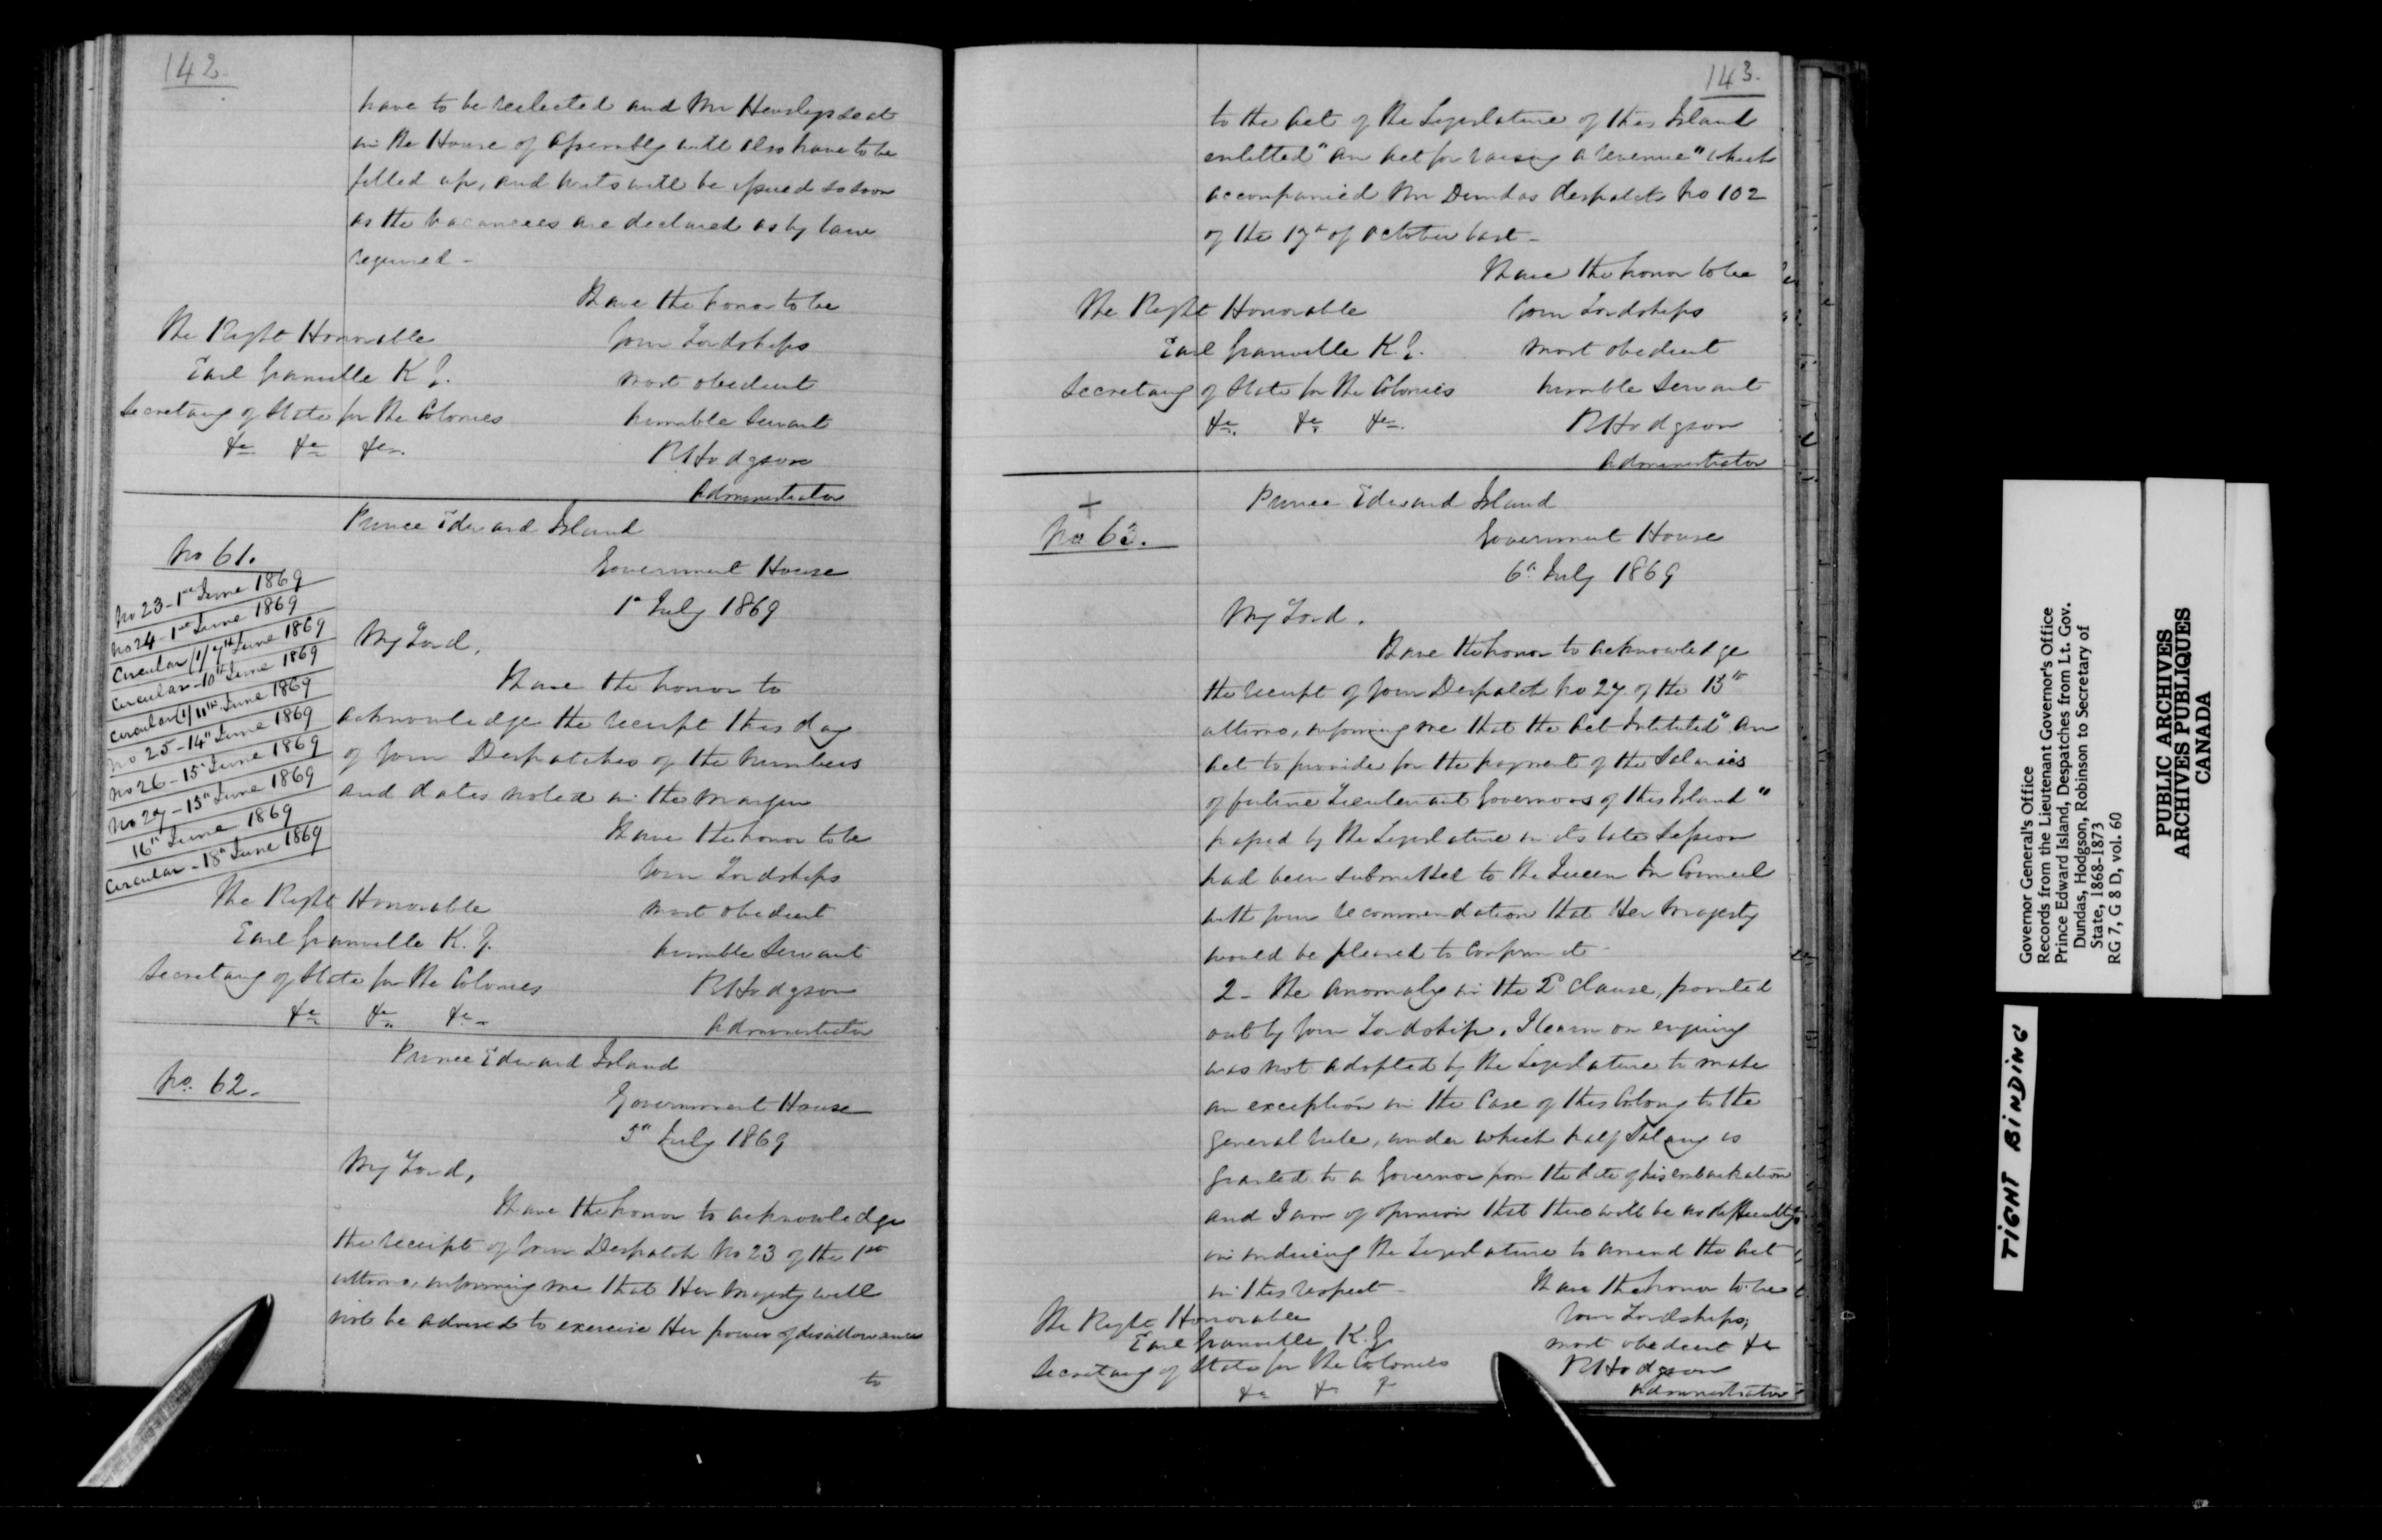 142.
have to be reelected and Mr Hensleys seat
in the House of Assembly will also have to be
filled up, and writs will be issued so soon
as the vacancies are declared as by law
required -
I have the honor to be
Your Lordships
most obedient
humble Servant
RHodgson
Administrator
The Right Honorable
Earl Granville K G.
Secretary of State for the Colonies
&c &c &c.
Prince Edward Island
No 61.
Government House
1st July 1869
No 23 - 1st June 1869
No 24 - 1st June 1869
Circular (1) 7th June 1869
Circular - 10th June 1869
Circular (1) 11th June 1869
No 25 - 14th June 1869
No 26 - 15th June 1869
No 27 - 15th June 1869
16th June 1869
Circular - 18th June 1869
My Lord,
I have the honor to
acknowledge the receipt this day
of your Despatches of the numbers
and dates noted in the margin
I have the honor to be
Your Lordships
most obedient
humble Servant
RHodgson
Administrator
The Right Honorable
Earl Granville K. G.
Secretary of State for the Colonies
&c &c &c
Prince Edward Island
No. 62.
Government House
5th July 1869
My Lord,
I have the honor to acknowledge
the receipt of Your Despatch No 23 of the 1st
ultimo, informing me that Her Majesty will
not be advised to exercise Her power of disallowance
to
143.
to the Act of the Legislature of this Island
entitled "An Act for raising a revenue" which
accompanied Mr Dundas despatch No 102
of the 17th of October last -
I have the honor to be
Your Lordships
most obedient
humble Servant
RHodgson
Administrator
The Right Honorable
Earl Granville K. G.
Secretary of State for the Colonies
&c. &c. &c.
Prince Edward Island
+
No 63.
Government House
6th July 1869
My Lord.
I have the honor to acknowledge
the receipt of your Despatch No 27. of the 15th
ultimo, informing me that the Act Intituled "An
Act to provide for the payment of the Salaries
of future Lieutenant Governors of this Island"
passed by the Legislature in its late Session
had been submitted to the Queen In Council
with your recommendation that Her Majesty
would be pleased to confirm it -
2 - The anomaly in the 2d Clause, pointed
out by your Lordship, I learn on enquiry
was not adopted by the Legislature to make
an exception in the Case of this Colony to the
general rule, under which half Salary is
granted to a Governor from the date of his embarkation
and I am of opinion that there will be no difficulty
in inducing the Legislature to amend the Act
in this respect -
I have the honor to be
Your Lordships,
most obedient &c
RHodgson
Administrator
The Right Honorable
Earl Granville K. G.
Secretary of State for the Colonies
&c &c &c
Governor General's Office
Records from the Lieutenant Governor's Office
Prince Edward Island, Despatches from Lt. Gov.
Dundas, Hodgson, Robinson to Secretary of
State, 1868-1873
RG 7, G 8 D, vol. 60
PUBLIC ARCHIVES
ARCHIVES PUBLIQUES
CANADA
TIGHT BINDING